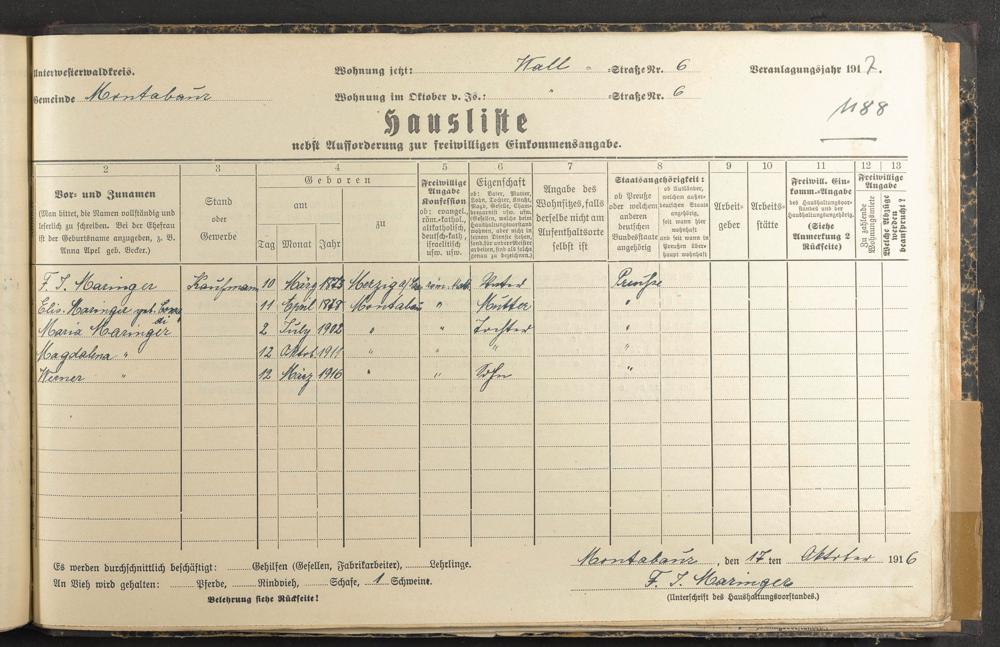 Unterwesterwaldkreis. Wohnung jetzt: Wall " =Straße Nr. 6 Veranlagungsjahr 1917.
Gemeinde Montabaur Wohnung im Oktober v. Js.: " =Straße Nr. 6
1188
Hausliste
nebst Aufforderung zur freiwilligen Einkommensangabe.
2 3 4 5 6 7 8 9 10 11 12 13
Vor= und Zunamen
(Man bittet, die Namen vollständig und
leserlich zu schreiben. Bei der Ehefrau
ist der Geburtsname anzugeben, z. B.
Anna Apel geb. Becker.)
Stand
oder
Gewerbe
Geboren
am
Tag Monat Jahr
zu
Freiwillige
Angabe
Konfession
ob: evangel.,
röm.=kathol.,
altkatholisch,
deutsch=kath.,
israelitisch
usw. usw.
Eigenschaft
ob: Vater, Mutter,
Sohn, Tochter, Knecht,
Magd, Geselle, Cham=
bregarnist usw. usw.
(Gesellen, welche beim
Haushaltungsvorstand
wohnen, aber nicht in
seinem Dienste stehen,
sind für unverheirateter
arbeiten, sind als solche
genau zu bezeichnen.)
Angabe des
Wohnsitzes, falls
derselbe nicht am
Aufenthaltsorte
selbst ist
Staatsangehörigkeit:
ob Preuße
oder welchem
anderen
deutschen
Bundesstaate
angehörig
ob Ausländer,
welchem außer=
deutschen Staate
angehörig,
seit wann hier
wohnhaft
und seit wann in
Preußen über=
haupt wohnhaft
Arbeit=
geber
Arbeits=
stätte
Freiwill. Ein=
komm.=Angabe
des Haushaltungsvor=
standes und der
Haushaltungsangehörig.
(Siehe
Anmerkung 2
Rückseite)
Freiwillige
Angabe
Zu zahlende
Wohnungsmiete
Welche Abzüge
werden
beansprucht?
F. J. Maringer Kaufmann 10 März 1873 Merzig röm. kath. Vater Preuße
Elis. Maringer geb. 11 April 1878 Montabaur " Mutter "
Maria Maringer 2 July 1902 " " Tochter "
Magdalena " 12 Oktob. 1911 " " " "
Werner " 12 März 1916 " " Sohn "
Es werden durchschnittlich beschäftigt: Gehilfen (Gesellen, Fabrikarbeiter), Lehrlinge.
An Vieh wird gehalten: Pferde, Rindvieh, Schafe, 1 Schweine.
Belehrung siehe Rückseite!
Montabaur, den 17ten Oktober 1916
F. J. Maringer
(Unterschrift des Haushaltungsvorstandes.)